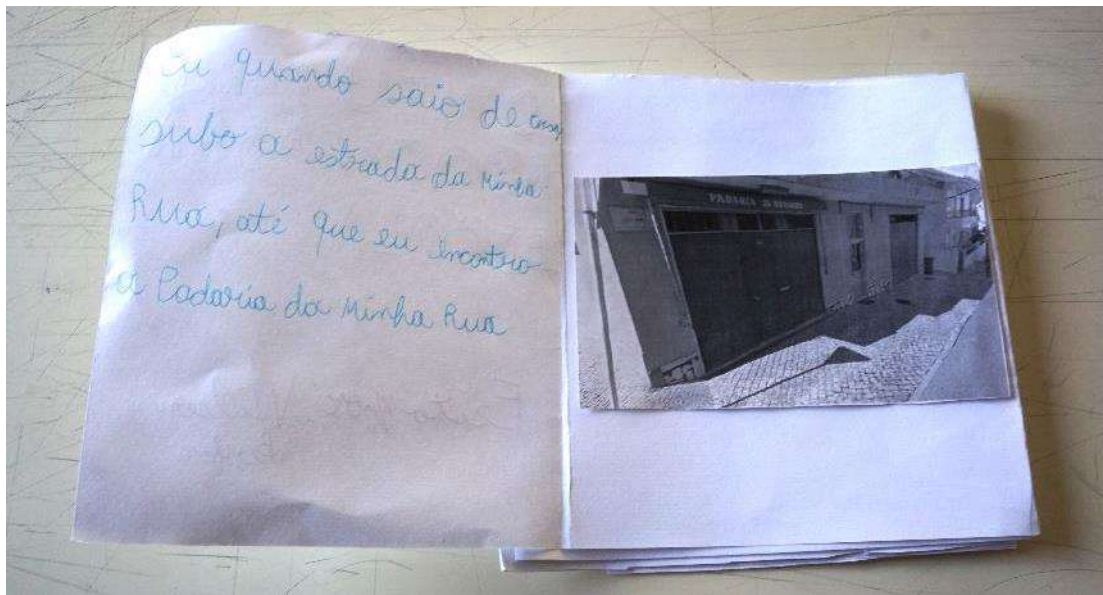 Eu quando saio de casa
subo a estrada da Minha
Rua, até que eu encontro
a Padaria da Minha Rua
PADARIA